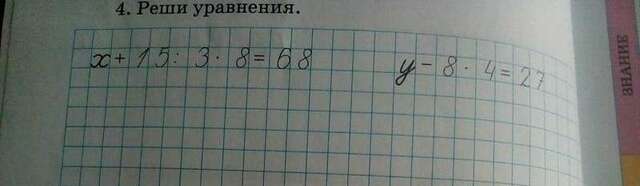 4. Реши уравнения.
x + 15 : 3 · 8 = 68
y − 8 · 4 = 27
ЗНАНИЕ